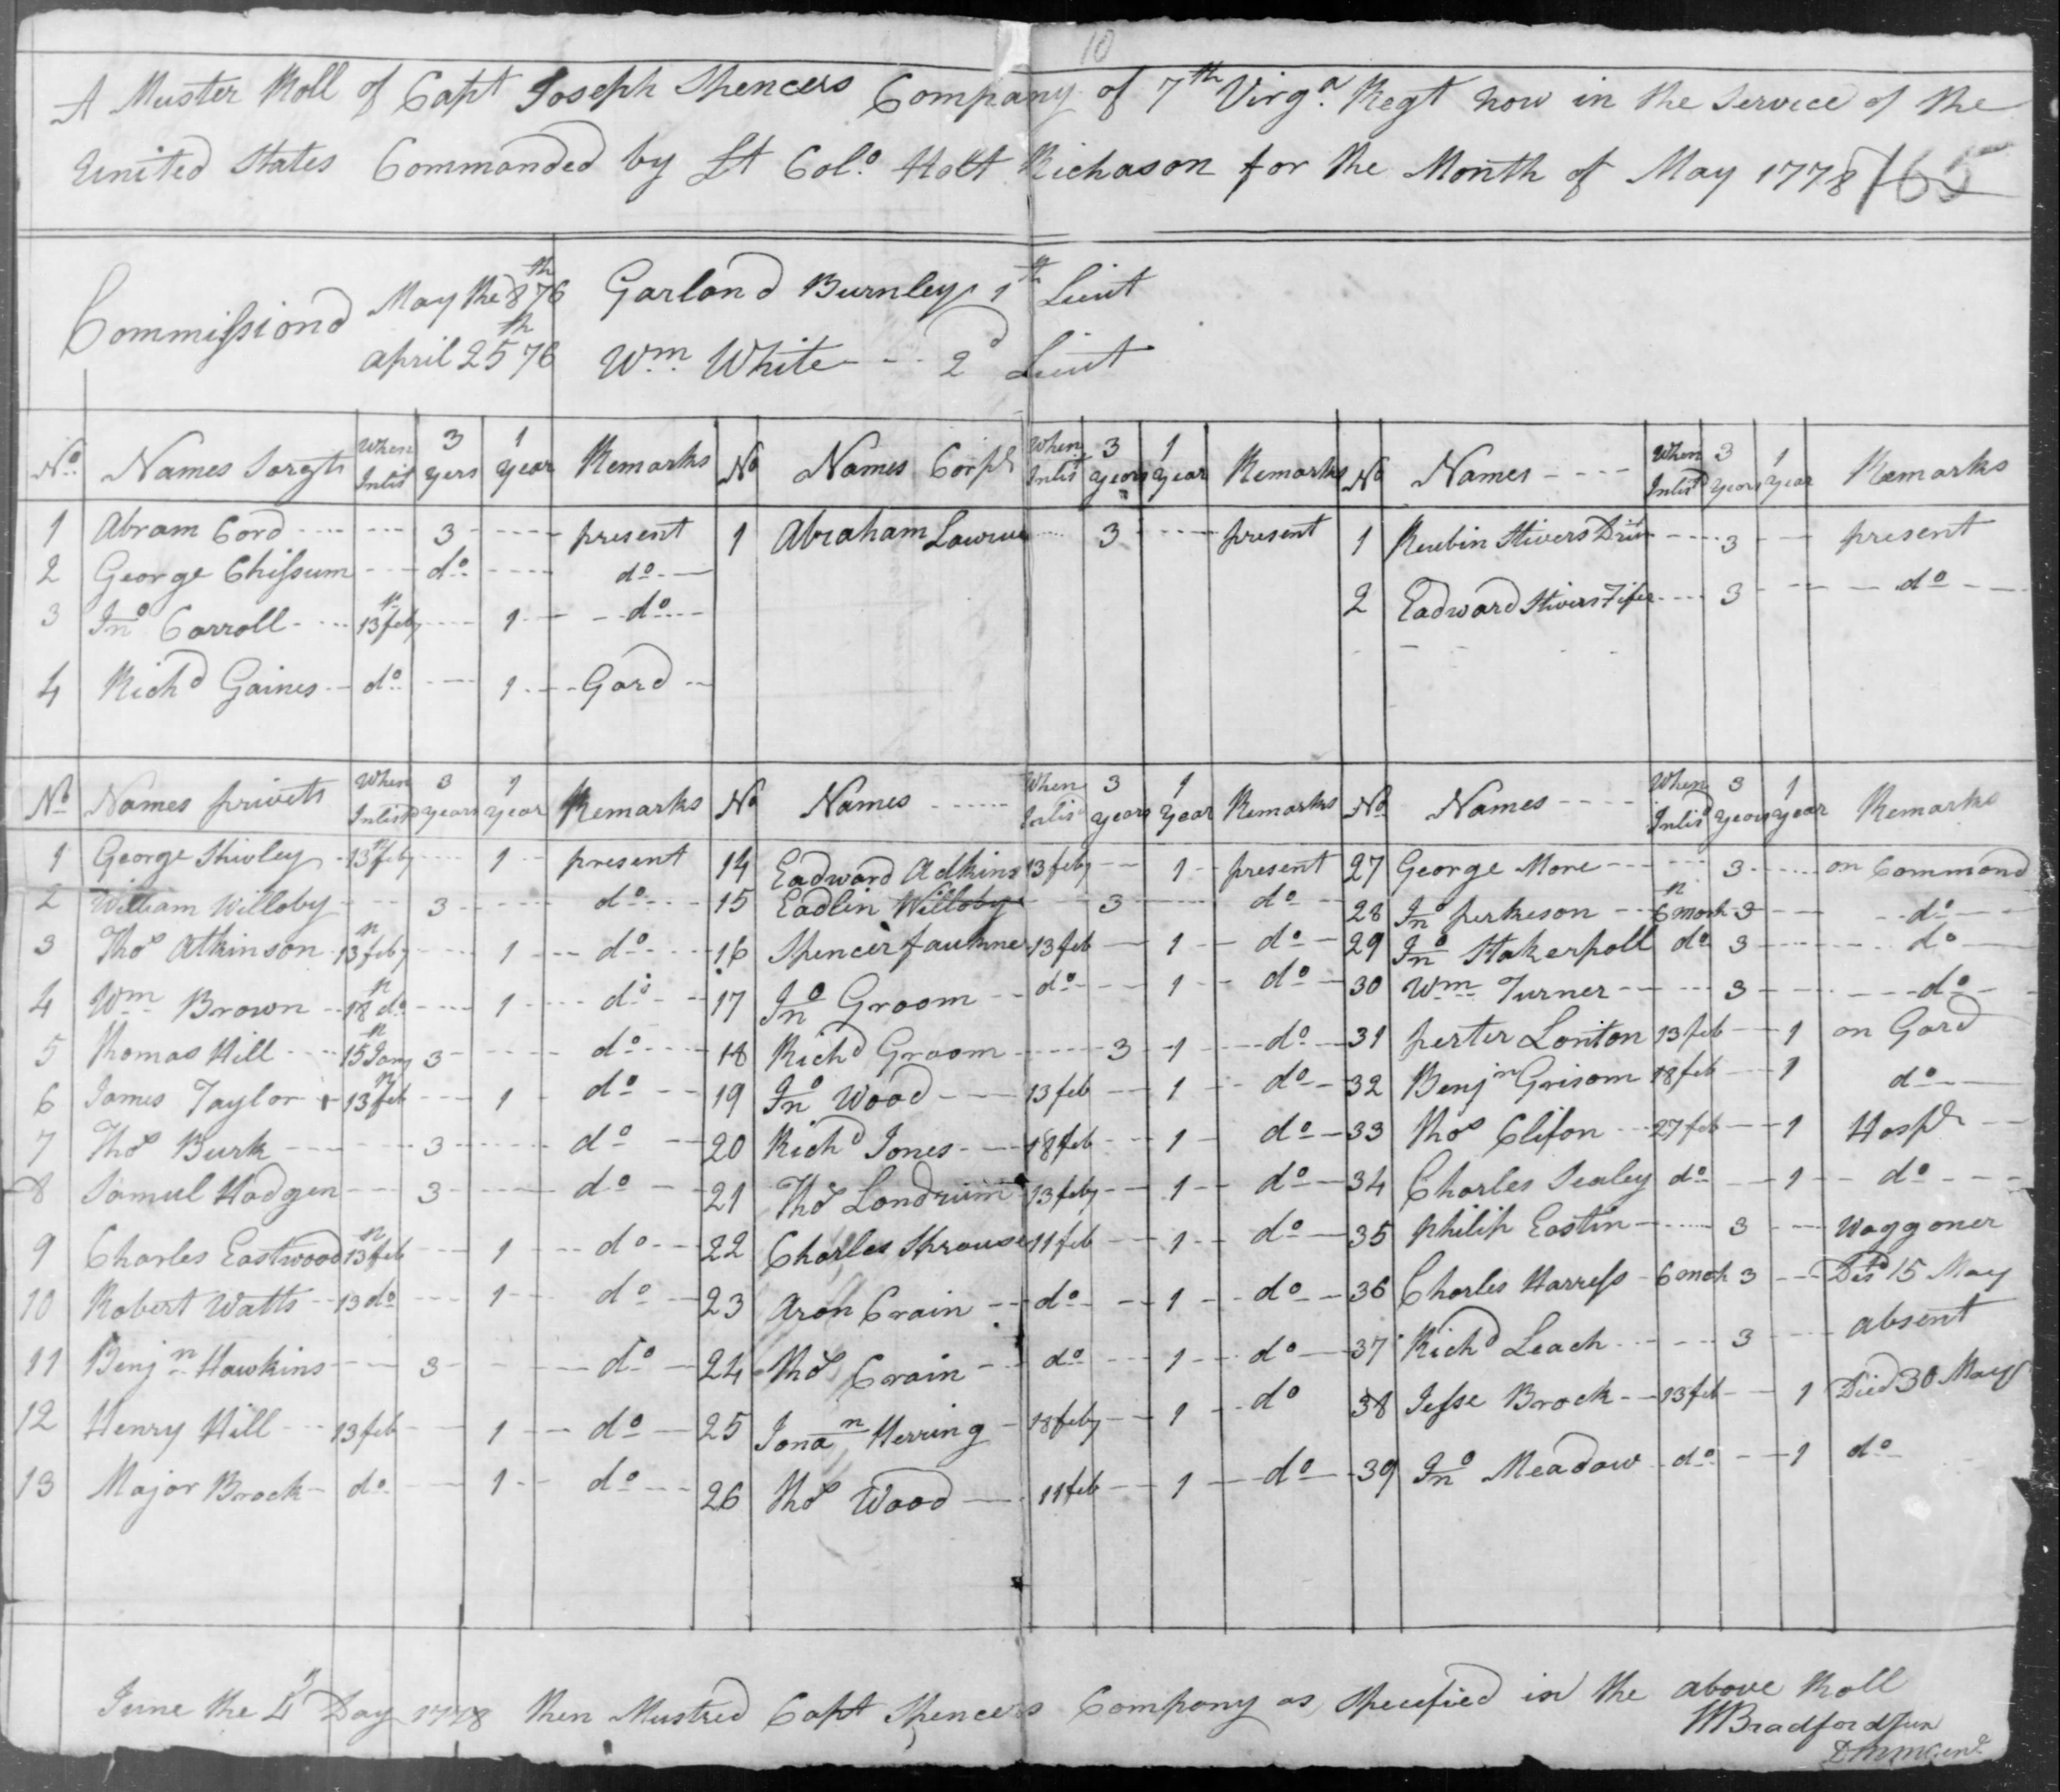 10
A Muster Roll of Capt Joseph Spencers Company of 7th Virga. Regt now in the Service of the
United States Commanded by Lt Colo. Holt Richason for the Month of May 1778 165
Commissiond May the 8th 76 Garland Burnley 1st Lieut
april 25th 76 Wm. White - - - 2d Lieut
No. Names Sargts When Inlist 3 yers 1 year Remarks No Names Corpls When Inlist 3 years 1 year Remarks No Names - - - - When Inlistd 3 years 1 year Remarks
1 Abram Cord - - - - 3 - - - - present 1 Abraham - - - - 3 - - - - present 1 Reubin Stivers - - - - 3 - - present
2 George Chissum - - - - do. - - - - do. 2 Eadward Stivers Fifer - - - - 3 - - - - do
3 Jno Carroll - - - - 13th feby - - - - 1 - - do. - -
4 Richd Gaines - - do. - - - 1 - - - Gard - -
No. Names privets When Inlistd 3 years 1 year Remarks No Names - - - - - When Inlisd 3 years 1 year Remarks No. Names - - - - When Inlisd 3 years 1 year Remarks
1 George Shivley - 13th feby - - - 1 - - present 14 Eadward Adkins 13 feby - - 1 - present 27 George More - - - - 3 - - - - on Command
2 William Willoby - - - 3 - - - - do - - - 15 Eadlin Willoby - - 3 - - - do 28 Jno perkeson - - 6th march 3 - - - do
3 Thos Atkinson 13th feby - - - 1 - - do - - - 16 Spencer faulkner 13 feb - - 1 - - do - 29 Jno Stakerpoll do 3 - - - - do
4 Wm Brown - - 18th do - - - 1 - - - do - - 17 Jno Groom - - do - - - 1 - - do - 30 Wm. Turner - - - - 3 - - - - - do
5 Thomas Hill - - - 15th Jany 3 - - - - do - - - 18 Richd Groom - - - - 3 1 - - do - 31 perter Lonton 13 feb - - 1 on Gard
6 James Taylor - 13th feb - - - 1 - - do - - 19 Jno Wood - - - 13 feb - - 1 - - do - 32 Benjn Grisom 18 feb - - 1 do
7 Thos Burk - - - - - 3 - - - - do - - 20 Richd Jones - - - 18 feb - - 1 - - do - 33 Thos Clifon - - 27 feb - - 1 Hospl - -
8 Samul Hodgen - - - 3 - - - - do - - 21 Thos Londrum 13 feby - - 1 - - do - 34 Charles Sealey do - - - 1 - - do - - -
9 Charles Eastwood 13th feb - - 1 - - do - - 22 Charles Strouse 11 feb - - 1 - - do - 35 philip Eastin - - - - 3 - - - Waggoner
10 Robert Watts - - 13 do - - - 1 - - do - 23 Aron Crain - - do - - 1 - - do - 36 Charles Harress - 6 mch 3 - - - Desd 15 May
11 Benjn Hawkins - - - 3 - - - - do - 24 Thos Crain - - do - - - 1 - - do - 37 Richd Leach - - - - 3 - - - absent
12 Henry Hill - - - 13 feb - - 1 - - do - 25 Jonan Herring - 18 feby - - 1 - - do 38 Jesse Brock - - 13 feb - - 1 Died 30 May
13 Major Brock - do. - - - 1 - - do - - - 26 Thos Wood - - - 11 feb - - 1 - - do - 39 Jno Meadow - do - - - 1 do
June the 4th Day 1778 then Mustred Capt Spencers Company as Specified in the above Roll
WBradford Jun
DMMGenl